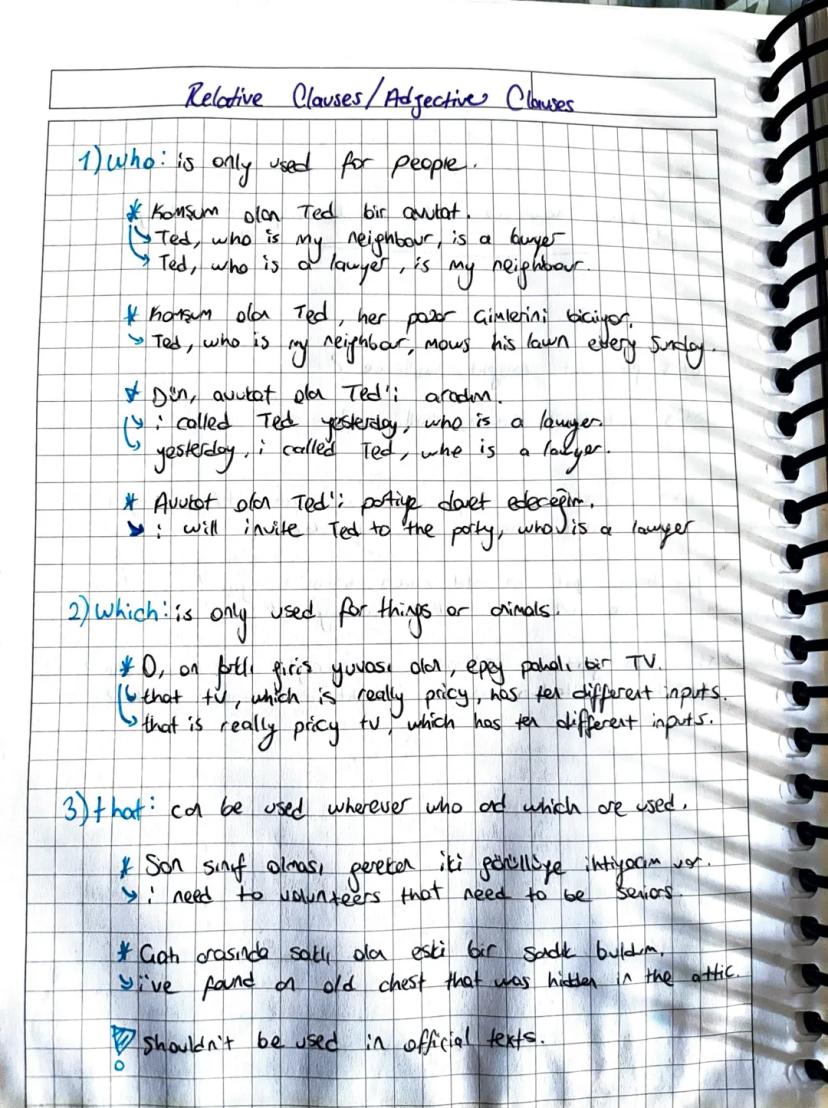 Relative Clauses/Adjective Clauses
1) who: is only used for people.
* Komşum olan Ted bir avukat.
Ted, who is my neighbour, is a lawyer
Ted, who is a lawyer, is my neighbour.
* Komşum olan Ted, her pazar çimlerini biçiyor.
Ted, who is my neighbour, mows his lawn every Sunday.
* Dün, avukat olan Ted'i aradım.
i called Ted yesterday, who is a lawyer.
yesterday, i called Ted, who is a lawyer.
* Avukat olan Ted'i partiye davet edeceğim.
i will invite Ted to the party, who is a lawyer
2) which: is only used for things or animals.
* O, on farklı giriş yuvası olan, epey pahalı bir TV.
that tv, which is really pricy, has ten different inputs.
that is really pricy tv, which has ten different inputs.
3) that: can be used wherever who and which are used.
* Son sınıf olması gereken iki gönüllüye ihtiyacım var.
i need to volunteers that need to be seniors.
* Çatı arasında saklı olan eski bir sandık buldum.
i've found an old chest that was hidden in the attic.
! Shouldn't be used in official texts.